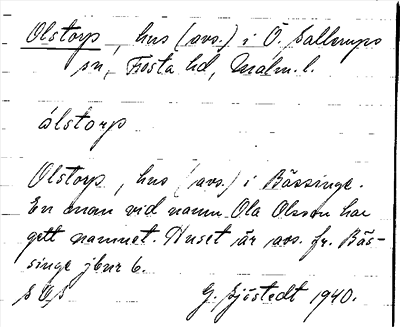 Olstorp, hus (avs.) i Ö. Sallerups
sn, Frosta hd, Malm. l.
ólstorp
Olstorp, hus (avs.) i Bässinge.
En man vid namn Ola Olsson har
gett namnet. Huset är avs. fr. Bäs-
singe jbnr 6.
G. Sjöstedt 1940.